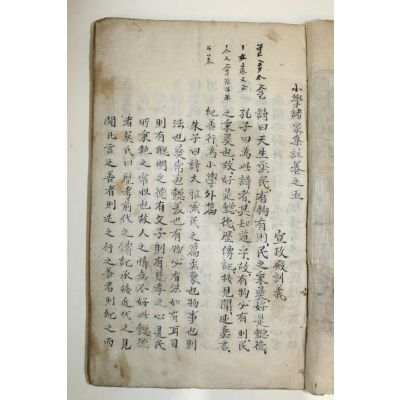 小學諸家集註卷之五
宣政殿訓義
詩曰天生烝民有物有則民之秉彛好是懿德
孔子曰爲此詩者其知道乎故有物必有則民
之秉彛也故好是懿德歷傳記接見聞述嘉言
紀善行爲小學外篇
朱子曰詩大雅烝民之篇烝衆也物事也則
法也彛常也懿美也有物必有法如有耳目
則有聰明之德有父子則有慈孝之心是民
所秉執之常性也故人之情無不好此懿德
者吳氏曰歷考前代之傳記承接近代之見
聞凡言之善者則述之行之善者則紀之而